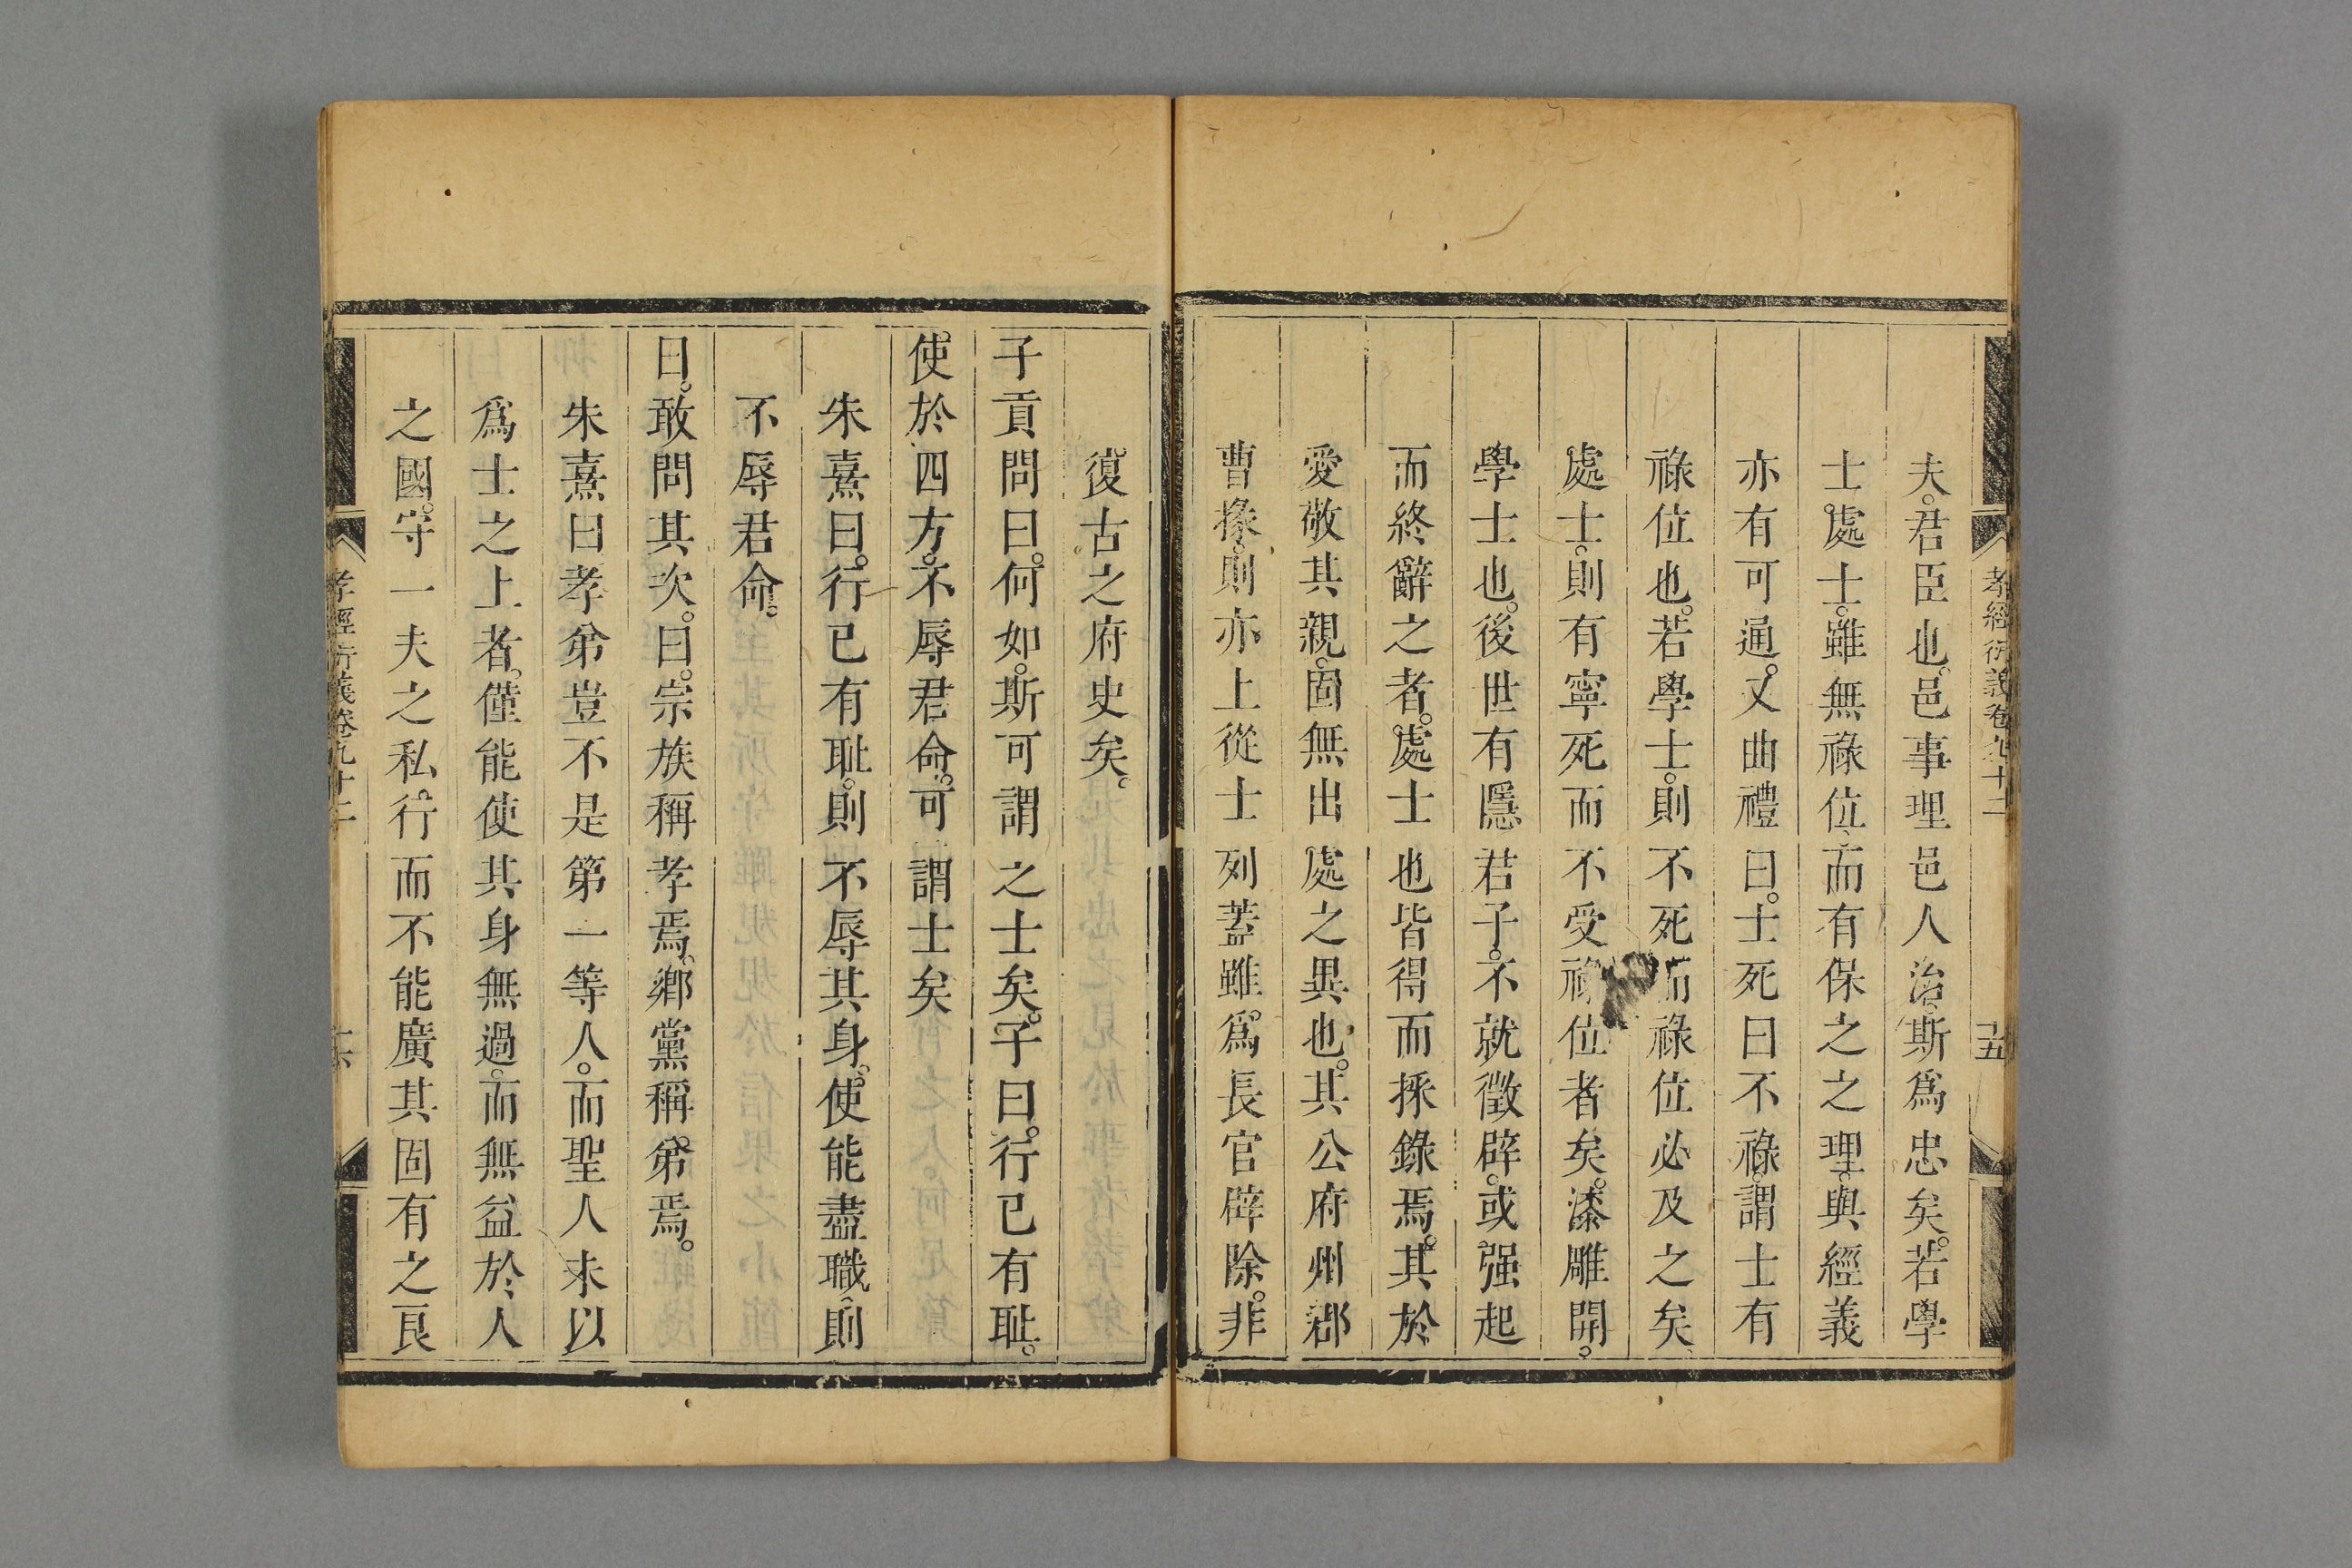 孝經衍義卷九十二
五
夫。君臣也。邑事理邑人治。斯爲忠矣。若學
士。處士。雖無祿位。而有保之之理。與經義
亦有可通。又曲禮曰。士死曰不祿。謂士有
祿位也。若學士。則不死而祿位必及之矣
處士。則有寧死而不受祿位者矣。漆雕開。
學士也。後世有隱君子。不就徵辟。或强起
而終辭之者。處士也皆得而採錄焉。其於
愛敬其親。固無出處之異也。其公府州郡
曹掾。則亦上從士列蓋雖爲長官辟除。非
復古之府史矣。
子貢問曰。何如。斯可謂之士矣。子曰。行已有耻。
使於四方。不辱君命。可謂士矣
朱熹曰。行已有耻。則不辱其身。使能盡職。則
不辱君命。
曰。敢問其次。曰。宗族稱孝焉。鄉黨稱弟焉。
朱熹曰孝弟豈不是第一等人。而聖人未以
爲士之上者。僅能使其身無過。而無益於人
之國。守一夫之私。行而不能廣其固有之良
孝經衍義卷九十二